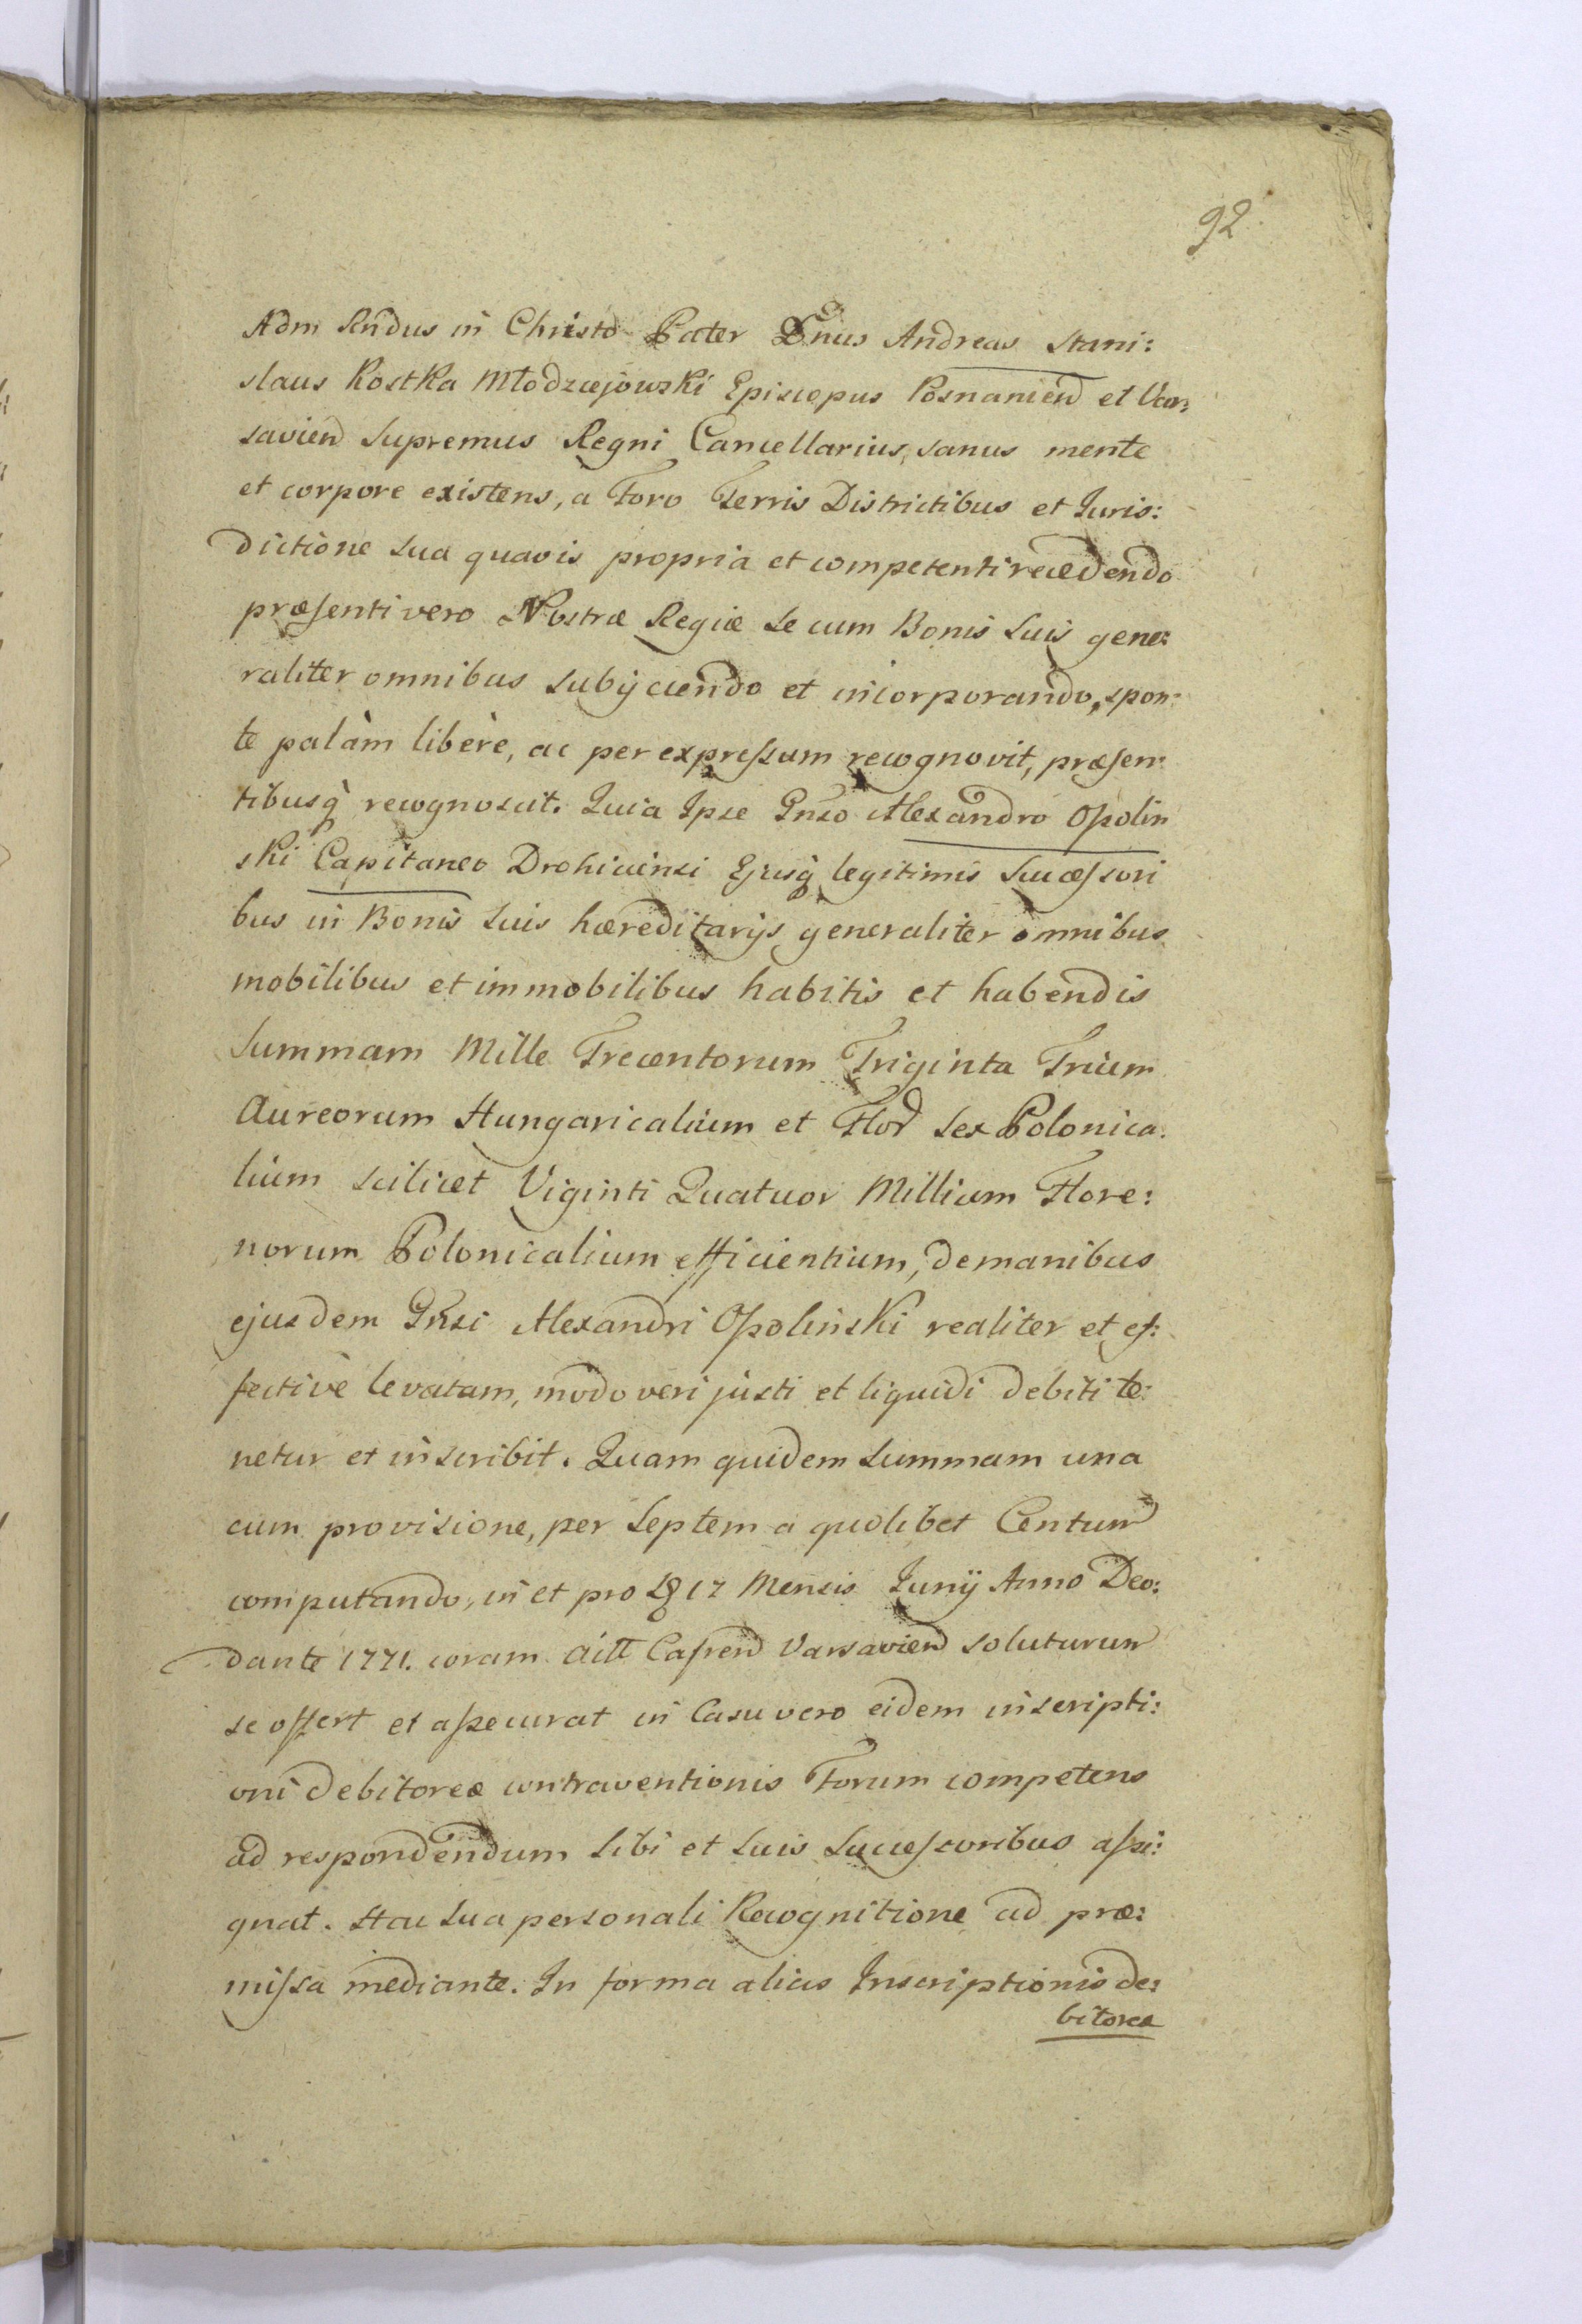 92
Adm Rndus in Christo Pater Dnus Andreas Stani:
slaus Kostka Młodziejowski Episcopus Posnanien et Var:
savien Supremus Regni Cancellarius, sanus mente
et corpore existens, a Foro Terris Districtibus et Juris:
dictione sua quavis propria et competenti recedendo
præsenti vero Nostræ Regiæ se cum Bonis suis gene:
raliter omnibus subijciendo et incorporando, spon:
te palàm liberè, ac per expressum recognovit, præsen:
tibusq̀ recognoscit. Quia Ipse Gnso Alexandro Opolin
ski Capitaneo Drohicensi Ejusq̀ legitimis Successori
bus in Bonis suis hæreditarijs generaliter omnibus
mobilibus et immobilibus habitis et habendis
Summam Mille Trecentorum Triginta Trium
Aureorum Hungaricalium et Flor sex Polonica:
lium scilicet Viginti Quatuor Millium Flore:
norum Polonicalium efficientium, de manibus
ejusdem Gnsi Alexandri Opolinski realiter et ef:
fectivè levatam, modo veri justi et liquidi debiti te:
netur et inscribit. Quam quidem summam una
cum provisione, per septem a quolibet Centum
computando, in et pro 17 Mensis Junij Anno Deo:
dante 1771. coram Castren Varsavien soluturum
se offert et assecurat in Casu vero eidem inscripti:
oni debitoreæ contraventionis Forum competens
ad respondendum sibi et suis Successoribus assi:
gnat. Hac sua personali Recognitione ad præ:
missa mediante. In forma alias Inscriptionis de:
bitoreæ